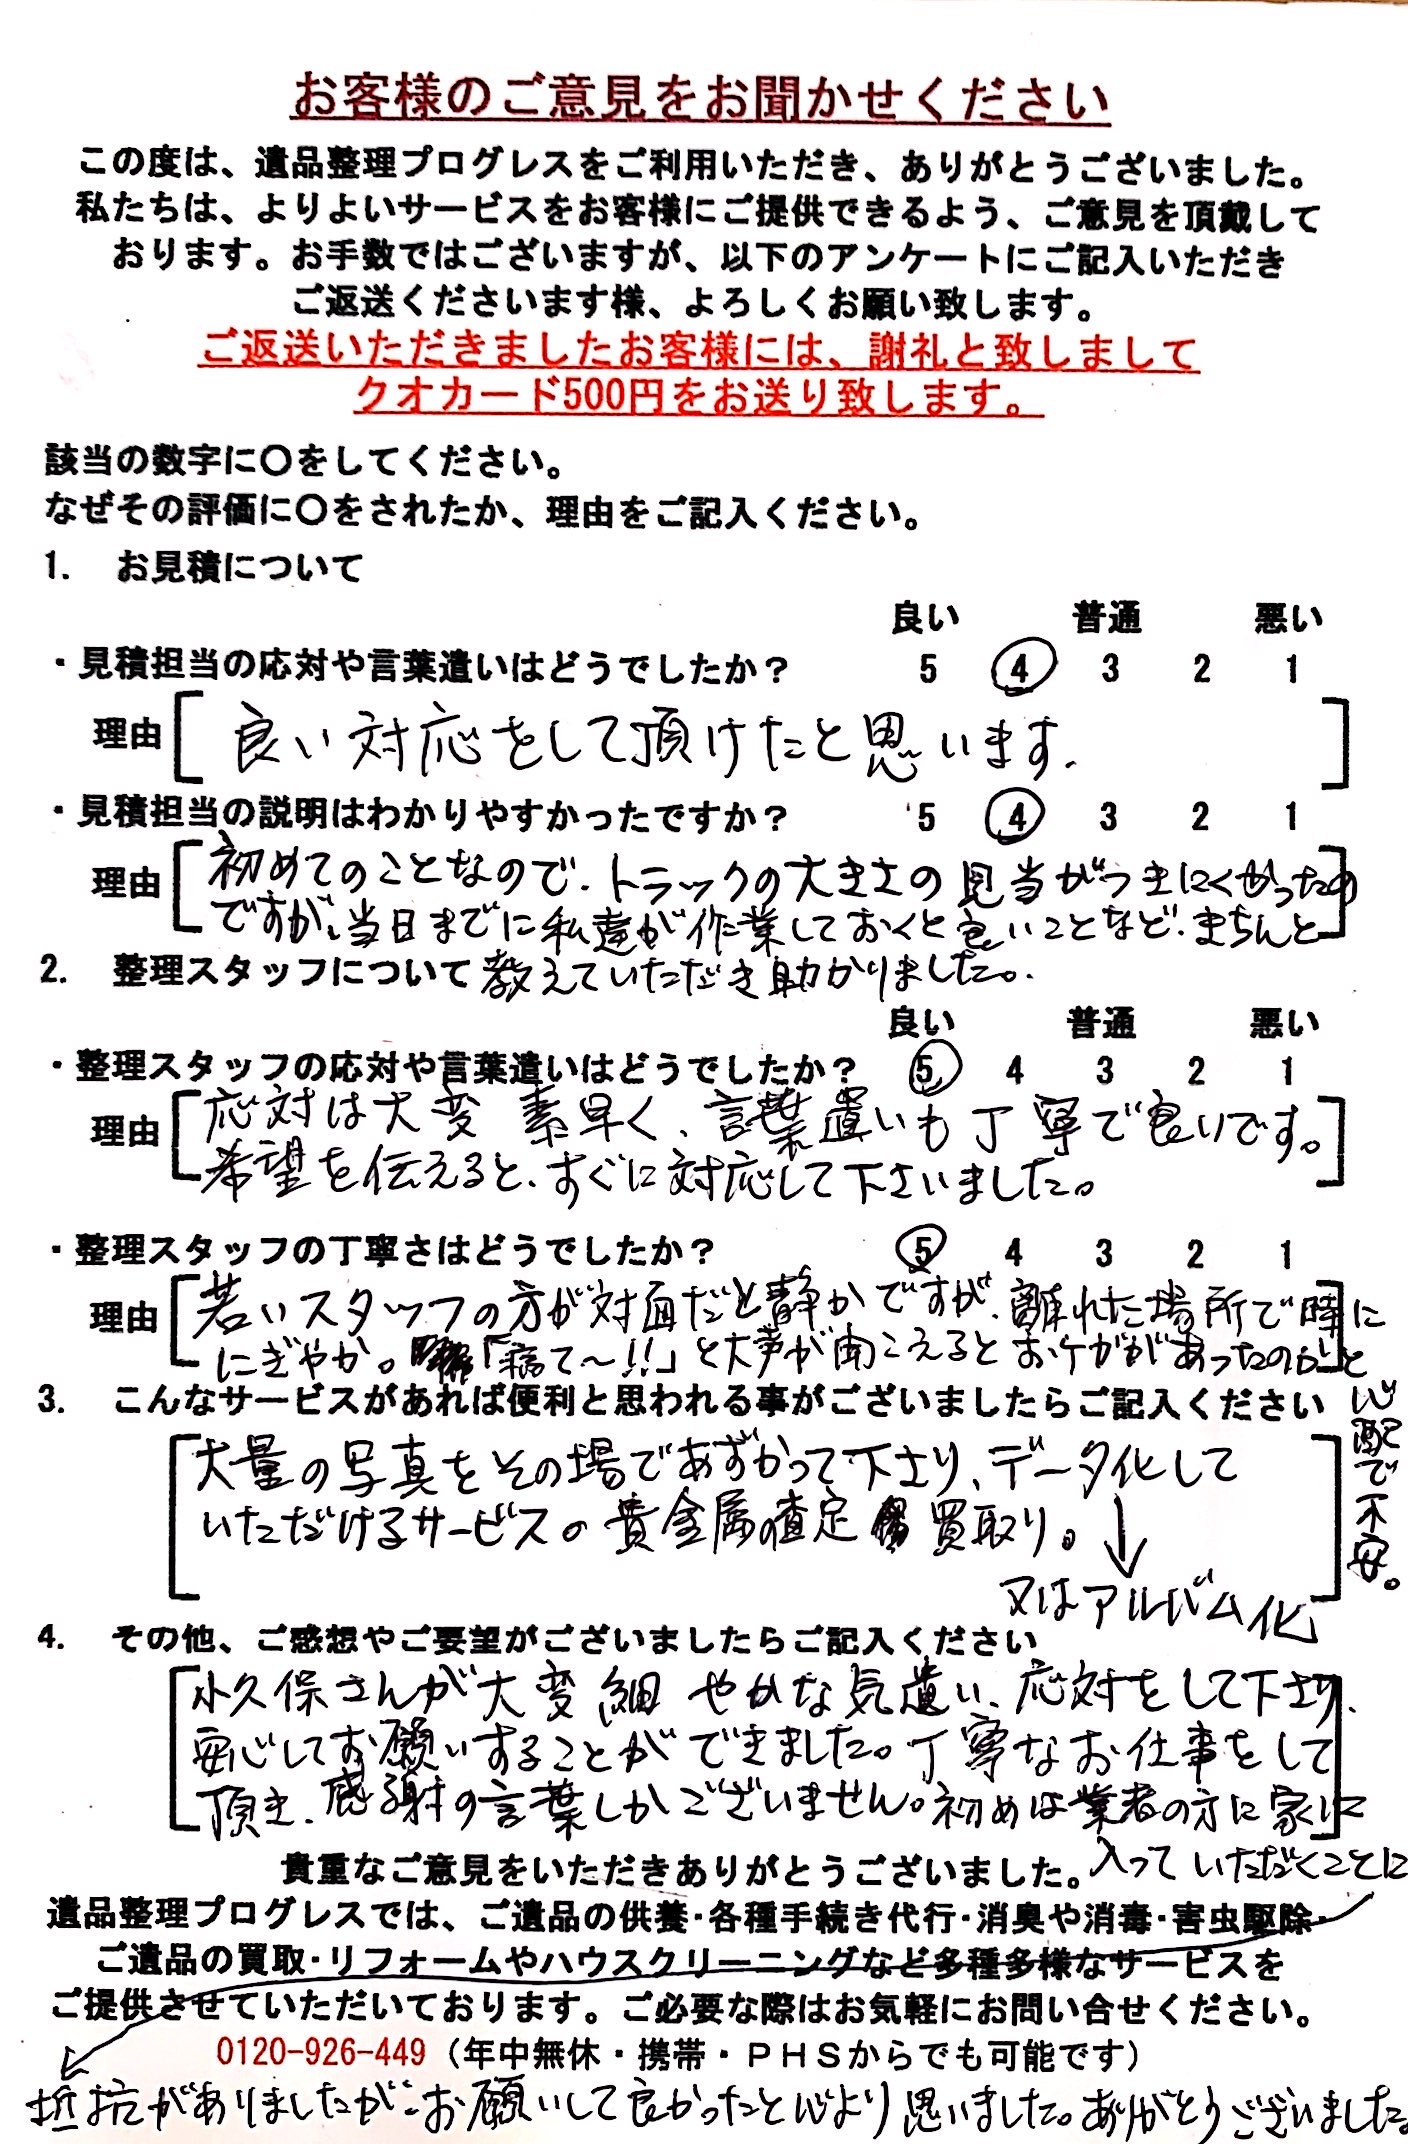 お客様のご意見をお聞かせください
この度は、遺品整理プログレスをご利用いただき、ありがとうございました。
私たちは、よりよいサービスをお客様にご提供できるよう、ご意見を頂戴して
おります。お手数ではございますが、以下のアンケートにご記入いただき
ご返送くださいます様、よろしくお願い致します。
ご返送いただきましたお客様には、謝礼と致しまして
クオカード500円をお送り致します。
該当の数字に〇をしてください。
なぜその評価に〇をされたか、理由をご記入ください。
1. お見積について
良い 普通 悪い
・見積担当の応対や言葉遣いはどうでしたか? 5 4 3 2 1
理由 [ 良い対応をして頂けたと思います。 ]
・見積担当の説明はわかりやすかったですか? 5 4 3 2 1
理由 [ 初めてのことなので、トラックの大きさの見当がつきにくかったの
ですが、当日までに私達が作業しておくと良いことなど、きちんと ]
2. 整理スタッフについて 教えていただき助かりました。
良い 普通 悪い
・整理スタッフの応対や言葉遣いはどうでしたか? 5 4 3 2 1
理由 [ 応対は大変素早く、言葉遣いも丁寧で良いです。
希望を伝えると、すぐに対応して下さいました。 ]
・整理スタッフの丁寧さはどうでしたか? 5 4 3 2 1
理由 [ 若いスタッフの方が対面だと静かですが、離れた場所で時に
にぎやか。「痛て〜!!」と大声が聞こえるとおケガがあったのかと ]
心配で不安。
3. こんなサービスがあれば便利と思われる事がございましたらご記入ください
[ 大量の写真をその場であずかって下さり、データ化して
いただけるサービスの貴金属の査定 買取り。 ]
↓
又はアルバム化
4. その他、ご感想やご要望がございましたらご記入ください
[ 小久保さんが大変細やかな気遣い、応対をして下さり、
安心してお願いすることができました。丁寧なお仕事をして
頂き、感謝の言葉しかございません。初めは業者の方に家に ]
入っていただくことに
貴重なご意見をいただきありがとうございました。
遺品整理プログレスでは、ご遺品の供養・各種手続き代行・消臭や消毒・害虫駆除・
ご遺品の買取・リフォームやハウスクリーニングなど多種多様なサービスを
ご提供させていただいております。ご必要な際はお気軽にお問い合せください。
0120-926-449(年中無休・携帯・PHSからでも可能です)
抵抗がありましたが、お願いして良かったと心より思いました。ありがとうございました。